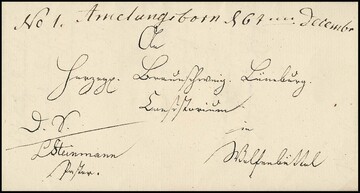 No 1. Amelungsborn d 6t Decembr
An
Herzogl. Braunschweig. Lüneburg.
Consistorium
in
D. S.
Wolfenbüttel
Steinmann
Pastor.